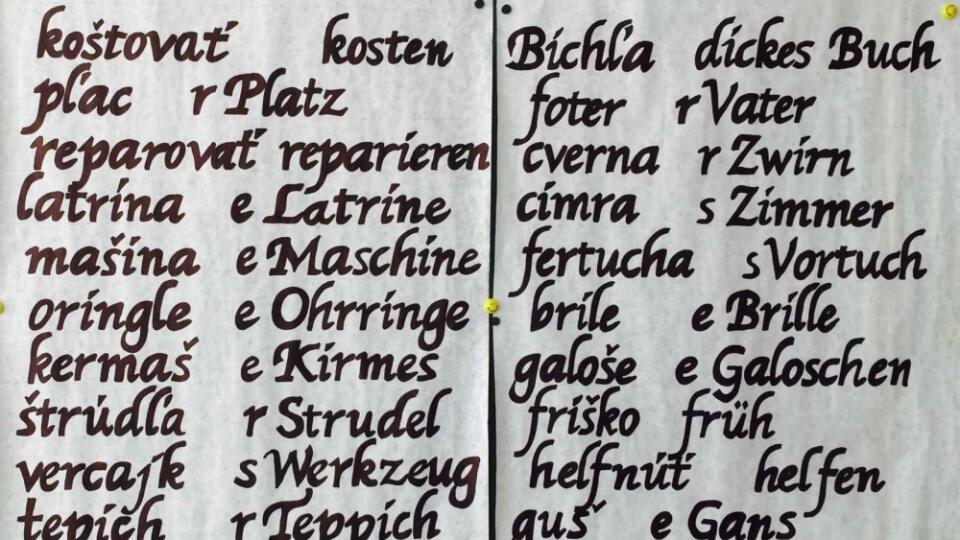 koštovať kosten
pľac r Platz
reparovať reparieren
latrina e Latrine
mašina e Maschine
oringle e Ohrringe
kermaš e Kirmes
štrúdľa r Strudel
vercajk s Werkzeug
tepich r Teppich
Bichľa dickes Buch
foter r Vater
cverna r Zwirn
cimra s Zimmer
fertucha s Vortuch
brile e Brille
galoše e Galoschen
friško früh
helfnúť helfen
guš e Gans